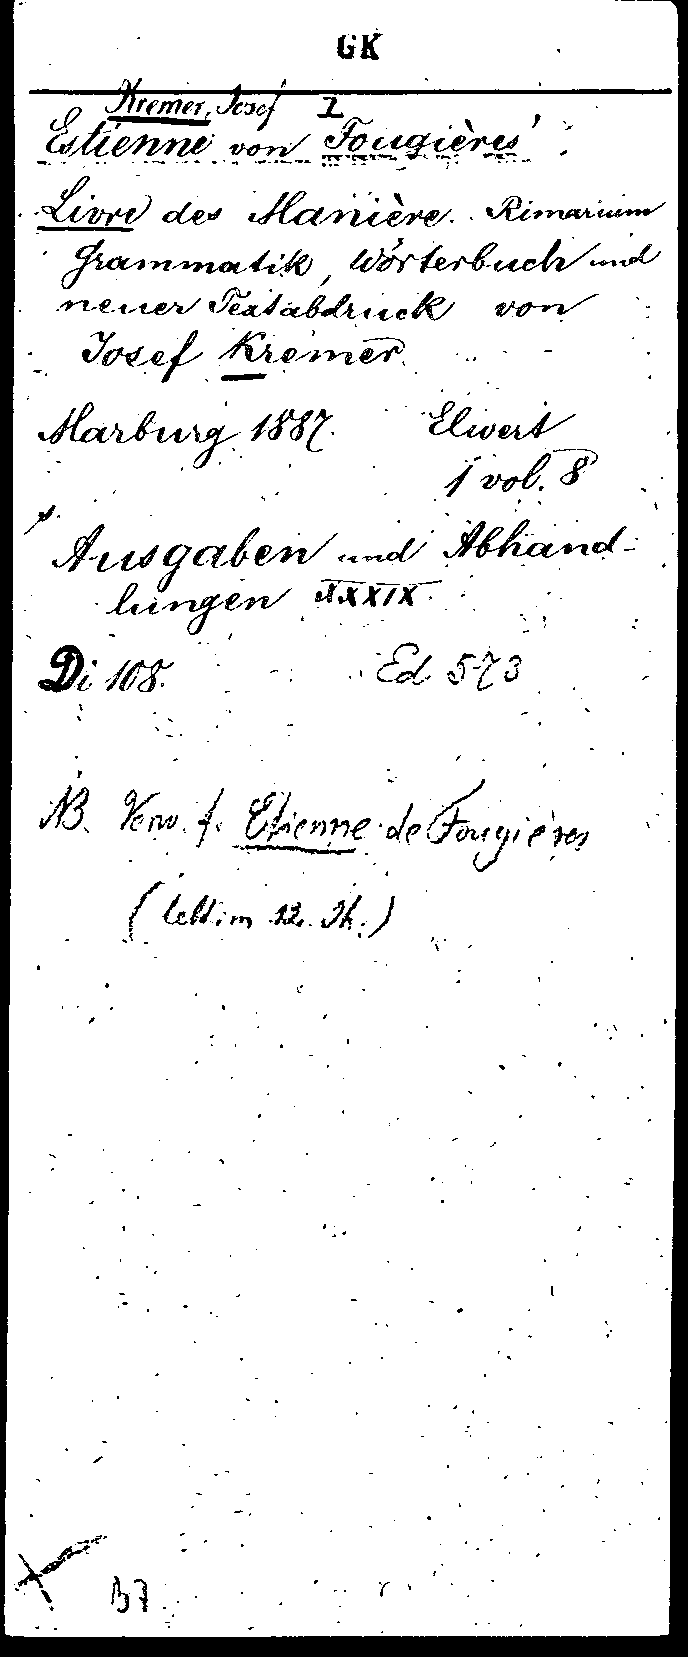 GK
Kremer, Josef I
Estienne von Fougières'
Livre des Manière. Rimarium
Grammatik, Wörterbuch und
neuer Textabdruck von
Josef Kremer.
Marburg 1887. Elwert
1 vol. 8
Ausgaben und Abhand-
lungen XXXIX.
Di 108. Ed 573
NB. Verw. f. Etienne de Fougières
(lebt im 12. Jh.)
B7